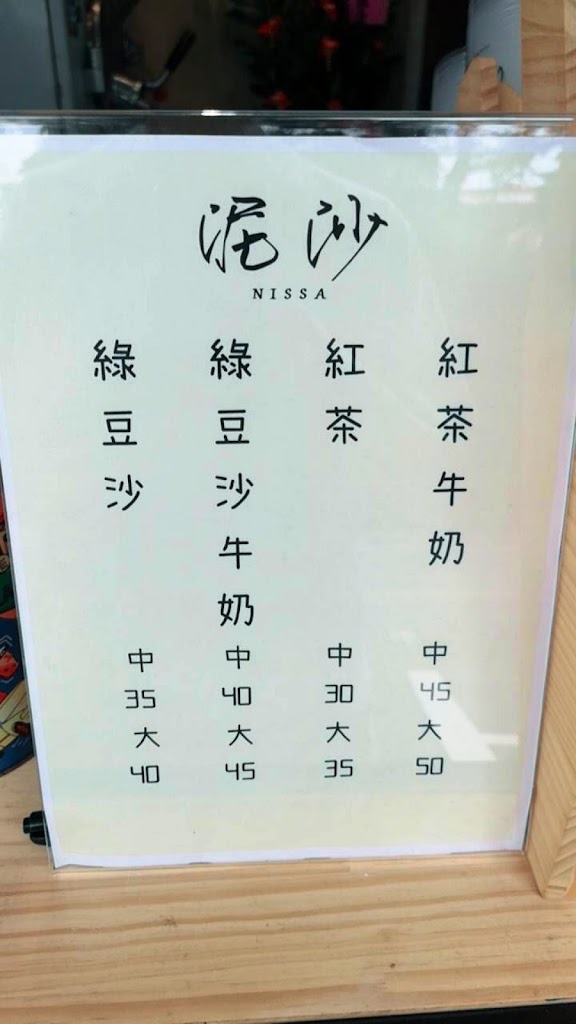 泥沙
NISSA
紅茶牛奶
中
45
大
50
紅茶
中
30
大
35
綠豆沙牛奶
中
40
大
45
綠豆沙
中
35
大
40